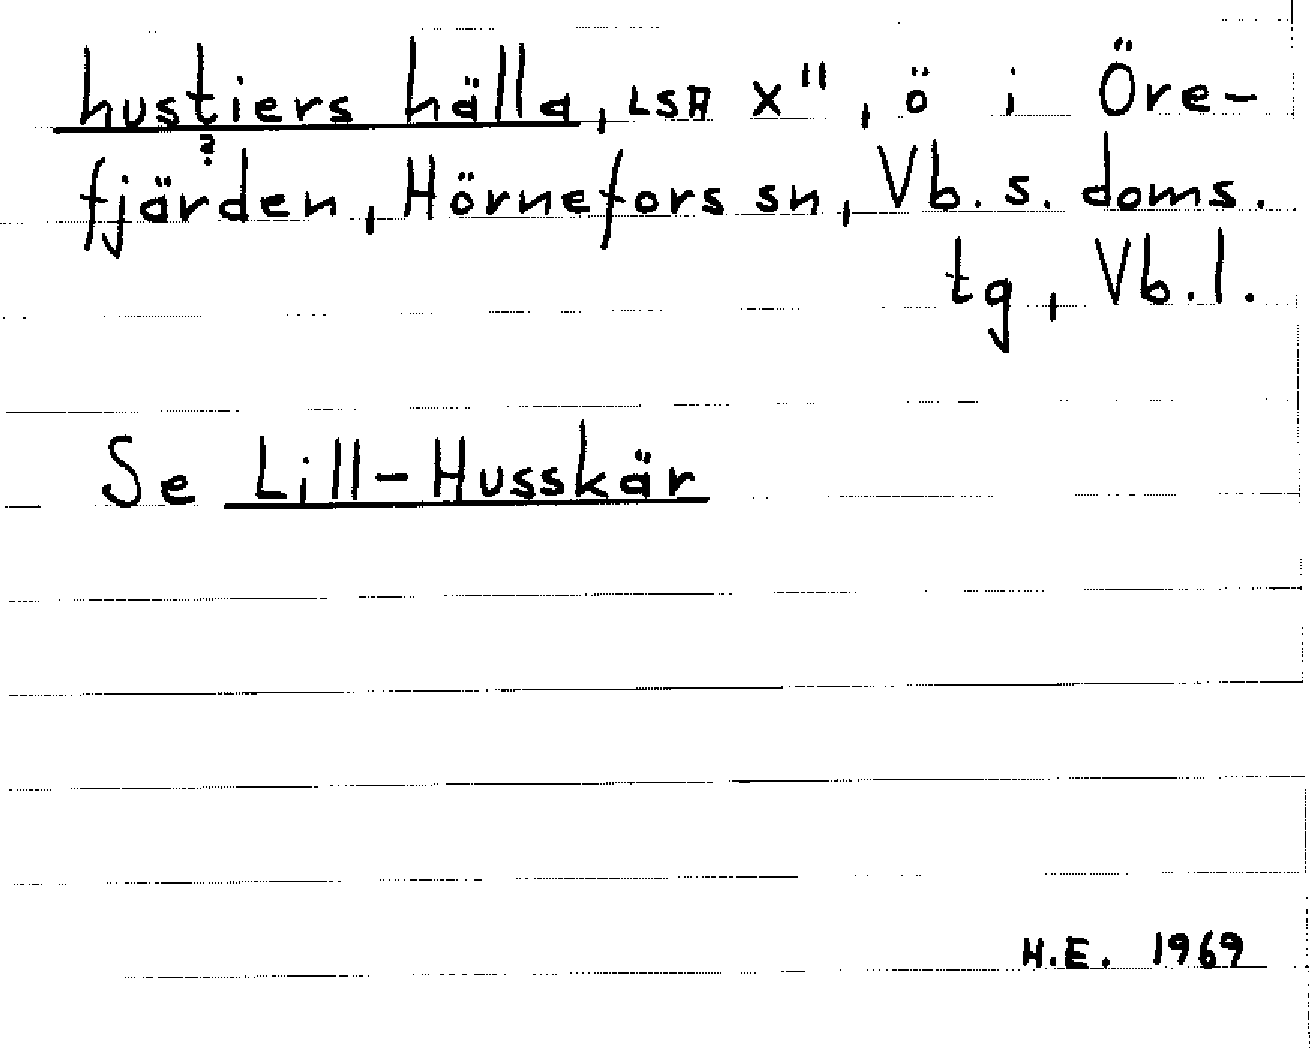 hustiers hälla, LSA X", ö i Öre-
?
fjärden, Hörnefors sn, Vb. s. doms.
tg, Vb. l.
Se Lill-Husskär
H.E. 1969